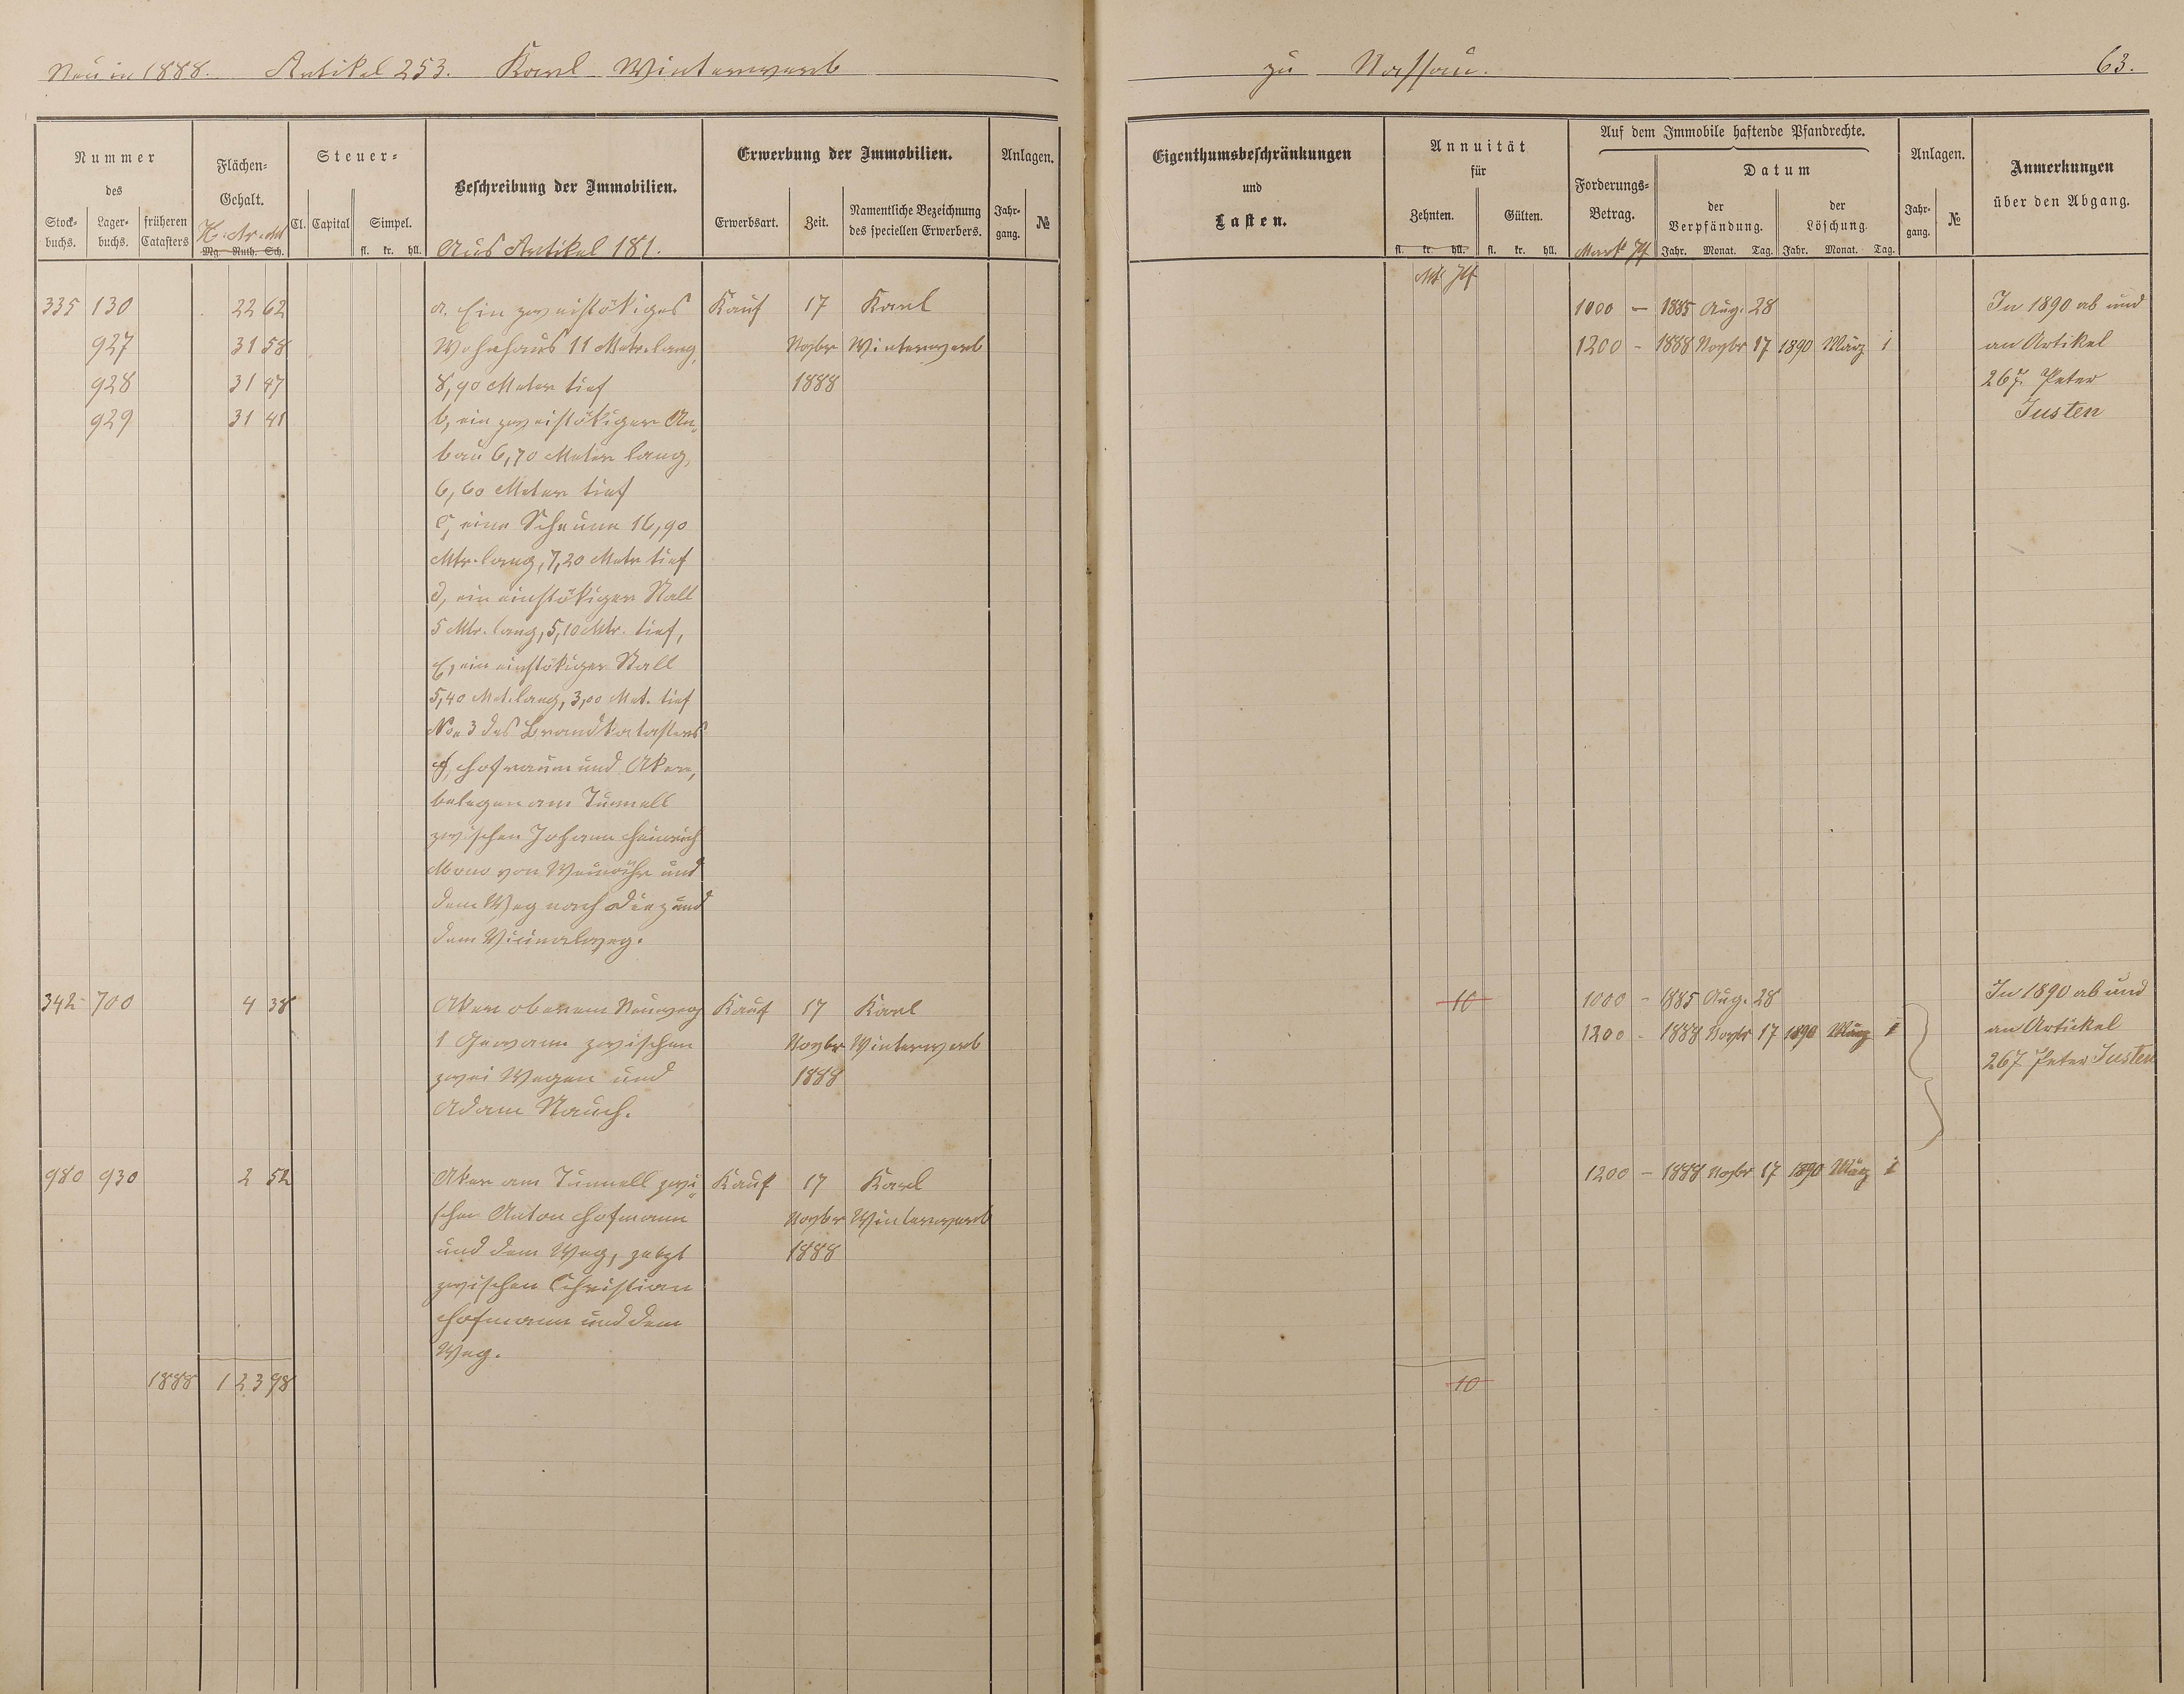 Neu in 1888. Artikel 253. Karl Winterwerb
zu Nassau. 63.
Nummer
des
Stock-
buchs.
Lager-
buchs.
früheren
Catasters
Flächen-
Gehalt.
H. Ar. Mt
Mg. Ruth. Sch.
Steuer-
Cl. Capital Simpel.
fl. kr. hll.
Beschreibung der Immobilien.
Aus Artikel 181.
Erwerbung der Immobilien.
Erwerbsart. Zeit.
Namentliche Bezeichnung
des speciellen Erwerbers.
Anlagen.
Jahr-
gang.
№
Eigenthumsbeschränkungen
und
Lasten.
Annuität
für
Zehnten. Gülten.
fl. kr. hll. fl. kr. hll.
Auf dem Immobile haftende Pfandrechte.
Forderungs-
Betrag.
Mark Pf
Datum
der
Verpfändung.
Jahr. Monat. Tag.
der
Löschung.
Jahr. Monat. Tag.
Anlagen.
Jahr-
gang.
№
Anmerkungen
über den Abgang.
335 130 22 62
927 31 58
928 31 47
929 31 41
a. Ein zweistökiges
Wohnhaus 11 Metr. lang,
8,90 Meter tief
b, ein zweistökiger An-
bau 6,70 Meter lang,
6,60 Meter tief
c, eine Scheune 16,90
Mtr. lang, 7,20 Metr tief
d, ein einstökiger Stall
5 Mtr. lang, 5,10 Mtr. tief,
e, ein einstökiger Stall
5,40 Met. lang, 3,00 Met. tief
No 3 des Brandkatasters
f, Hofraum und Aker,
belegen am Tunnell
zwischen Johann Heinrich
von Weinähr und
dem Weg nach Diez und
dem Vicinalweg.
Kauf 17 Karl
Novbr Winterwerb
1888
Mk Pf
1000 – 1885 Aug. 28
1200 – 1888 Novbr 17 1890 März 1
In 1890 ab und
an Artikel
267. Peter
Justen
342 700 4 38
Aker oberem Neuweg
1 Gewann zwischen
zwei Wegen und
Adam Rauch.
Kauf 17 Karl
Novbr Winterwerb
1888
10
1000 – 1885 Aug. 28
1200 – 1888 Novbr 17 1890 März 1
In 1890 ab und
an Artikel
267 Peter Justen
980 930 2 52
Aker am Tunnell zwi-
schen Anton Hofmann
und dem Weg, jetzt
zwischen Christian
Hofmann und dem
Weg.
Kauf 17 Karl
Novbr Winterwerb
1888
1200 – 1888 Novbr 17 1890 März 1
1888 1 23 98
10